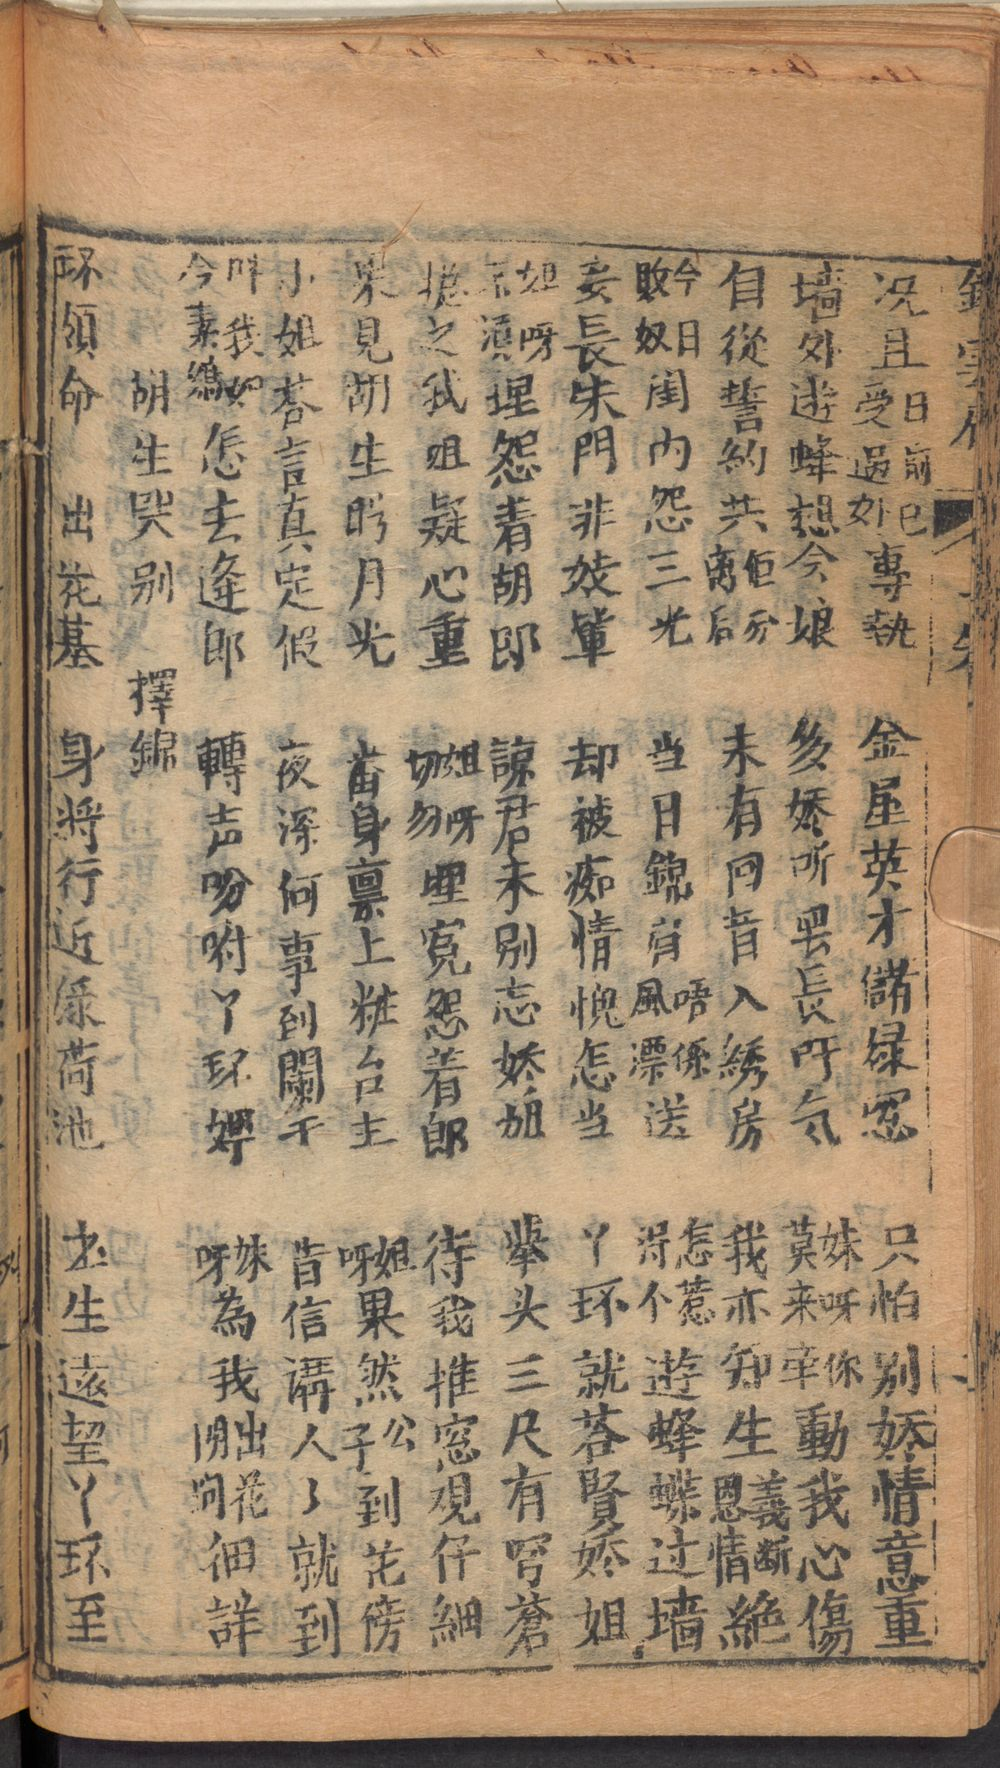 况且日前已受過外專執 金屋英才儲绿窓 只怕别娇情意重
墙外遊蜂想今娘 多娇听罢長吁气 妹呀你莫来牵動我心傷
自從誓約共佢分离后 未有同音入綉房 我亦知生義断恩情絶
今日敗奴閨内怨三光 当日錦肖唔係風漂送 怎惹得个遊蜂蝶过墙
妾長朱門非妓軰 却被痴情愧怎当 丫环就荅賢娇姐
姐呀不須埋怨着胡郎 諒君未别忘娇姐 举头三尺有穹蒼
搃之我姐疑心重 姐呀切勿埋寃怨着郎 待我推窓观仔細
果見胡生盼月光 畨身禀上粧台主 姐呀果然公子到花傍
小姐荅言真定假 夜深何事到闌干 昔信講人人就到
叫我如今妻鳩怎去逢郎 轉声吩咐丫环婢 妹呀為我出花閒问個詳
胡生哭别 擇錦
环領命 出花基 身將行近绿荷池 书生遠望丫环至